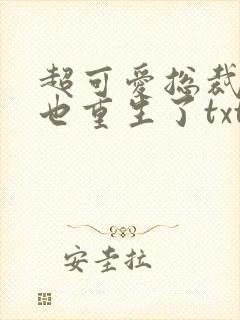 超可爱总裁
也重生了txt
安圭拉